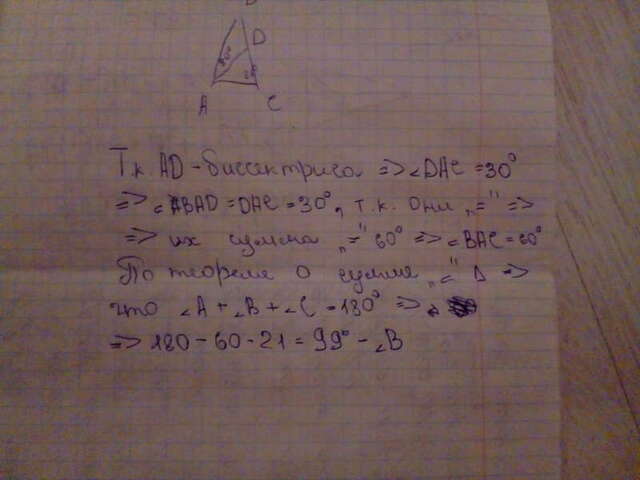 D
A
C
Т.к. AD-биссектриса => ∠DAC = 30°
=> ∠BAD = DAC = 30°, т.к. они „=" =>
=> их сумма „=" 60° => ∠BAC = 60°
По теореме о сумме „∠" Δ =>
что ∠A + ∠B + ∠C = 180° =>
=> 180 - 60 - 21 = 99° - ∠B